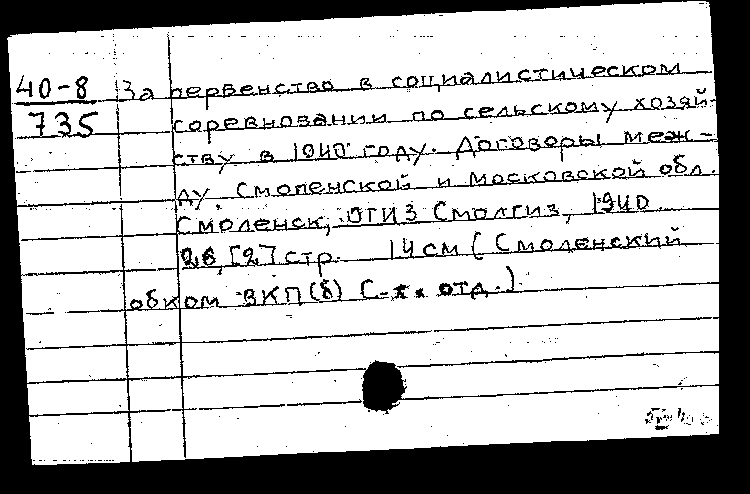 40-8
735
За первенство в социалистическом
соревновании по сельскому хозяй-
ству в 1940 году. Договоры меж-
ду Смоленской и Московской обл.
Смоленск, ОГИЗ Смолгиз, 1940.
26, [2] стр. 14 см (Смоленский
обком ВКП(б) С.-х. отд.)